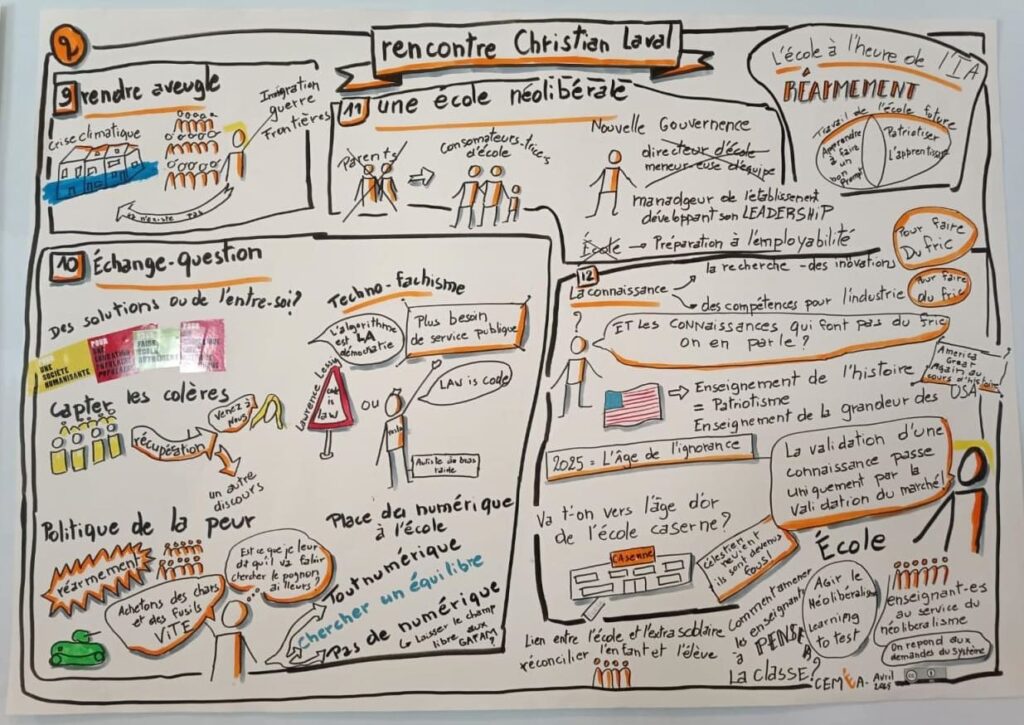 2
rencontre Christian Laval
9 rendre aveugle
Crise climatique
Immigration
guerre
Frontières
ça n'existe pas
11 une école néolibérale
Parents
Consomateurs-trices
d'école
Nouvelle Gouvernence
directeur d'école
meneur·euse d'équipe
manadgeur de l'établissement
développant son LEADERSHIP
École → Préparation à l'employabilité
L'école à l'heure de l'IA
RÉARMEMENT
Travail de l'école future
Apprendre
à faire
un
bon
Prompt
Patriotiser
L'apprentissage
10 Échange-question
Des solutions ou de l'entre-soi?
POUR
UNE
SOCIÉTÉ
HUMANISANTE
POUR
UNE
EDUCATION
POPULAIRE
POUR
FAIRE
ECOLE
AUTREMENT
POUR
Capter les colères
récupération
Venez à
Nous!
un autre
discours
Techno-fachisme
L'algorithme
est LA
démocratie
Plus besoin
de service publique
Lawrence Lessig
code is
law
ou
LAW is code
Autiste du bras
raide
Politique de la peur
réarmement
Achetons des chars
et des fusils
ViTE
Est ce que je leur
dit qu'il va falloir
chercher le pognon
ailleurs?
Place du numérique
à l'école
Tout numérique
Chercher un équilibre
Pas de numérique
↳ laisser le champ
libre aux
GAFAM
12
La connaissance
la recherche - des inovations
Pour faire
Du fric
des compétences pour l'industrie
Pour faire
du fric
?
ET LES CONNAISSANCES qui font pas du fric
on en parle?
Enseignement de l'histoire
= Patriotisme
Enseignement de la grandeur des USA
America
Great
Again au
cours d'histoire
2025 = L'Âge de l'ignorance
La validation d'une
connaissance passe
uniquement par la
validation du marché!
Va t'on vers l'âge d'or
de l'école caserne?
CAserne
Célestien
revient
ils sont devenus
fous!
École
enseignant-es
au service du
néolibéralisme
On repond aux
demandes du Système
Agir le
Néolibéralisme
learning
to test
Comment amener
les enseignants
à PENSER
La CLASSE?
Lien entre l'école et l'extra scolaire
réconcilier l'enfant et l'élève
CEMÉA - Avril
2025
cc